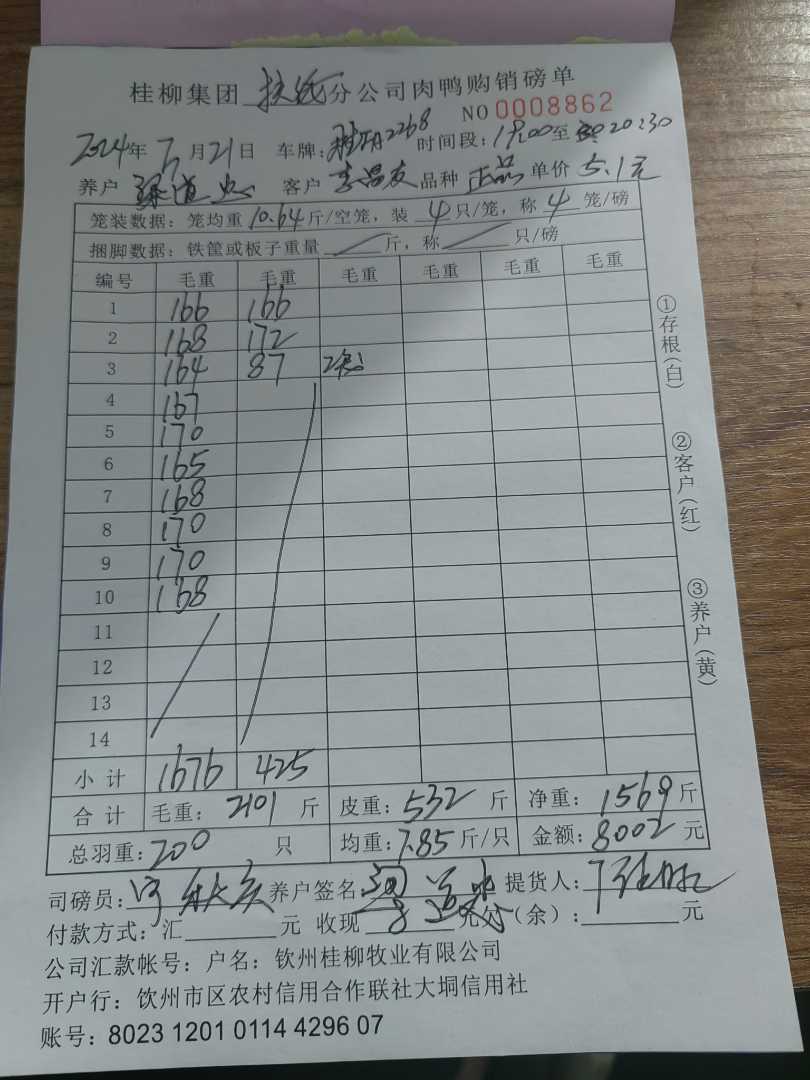 桂柳集团 扶绥 分公司肉鸭购销磅单
NO 0008862
2024年 6月21日 车牌: 2268 时间段: 19:00至 20:30
养户 道忠 客户 李昌友 品种 正品 单价 5.1元
笼装数据: 笼均重 10.64 斤/空笼, 装 4 只/笼, 称 4 笼/磅
捆脚数据: 铁筐或板子重量 斤, 称 只/磅
编号 毛重 毛重 毛重 毛重 毛重 毛重
1 166 166
2 168 172
3 164 87 2笼
4 167
5 170
6 165
7 168
8 170
9 170
10 168
11
12
13
14
小计 1676 425
合计 毛重: 2101 斤 皮重: 532 斤 净重: 1569 斤
总羽重: 200 只 均重: 7.85 斤/只 金额: 8002 元
司磅员: 养户签名 提货人:
付款方式: 汇 元 收现 元欠 (余): 元
公司汇款帐号: 户名: 钦州桂柳牧业有限公司
开户行: 饮州市区农村信用合作联社大垌信用社
账号: 8023 1201 0114 4296 07
①存根(白)
②客户(红)
③养户(黄)